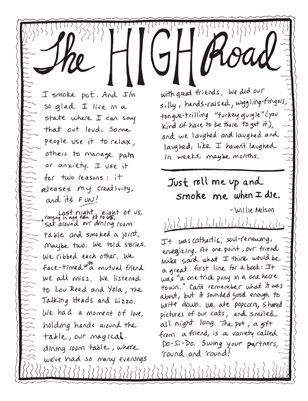 The HIGH Road
I smoke pot. And I'm
so glad I live in a
state where I can say
that out loud. Some
people use it to relax,
others to manage pain
or anxiety. I use it
for two reasons: it
releases my creativity,
and it's FUN!
Last night, eight of us,
ranging in age from 22 to 66,
sat around our dining room
table and smoked a joint,
maybe two. We told stories.
We ribbed each other. We
face-timed a mutual friend
we all miss. We listened
to Lou Reed and Yola, the
Talking Heads and Lizzo.
We had a moment of love,
holding hands around the
table, our magical
dining room table, where
we've had so many evenings
with good friends. We did our
silly, hands-raised, wiggling-fingers,
tongue-trilling "turkey gurgle" (you
kind of have to be there to get it),
and we laughed and laughed and
laughed, like I haven't laughed
in weeks, maybe months.
Just roll me up and
smoke me when I die.
-Willie Nelson
It was cathartic, soul-renewing,
energizing. At one point, our friend
said what I think would be
a great first line for a book: It
was "a one trick pony in a one horse
town." Can't remember what it was
about, but it sounded good enough to
write down. We ate popcorn, shared
pictures of our cats, and smiled
all night long. The pot, a gift
from a friend, is a variety called
Do-Si-Do. Swing your partners,
'round and 'round!